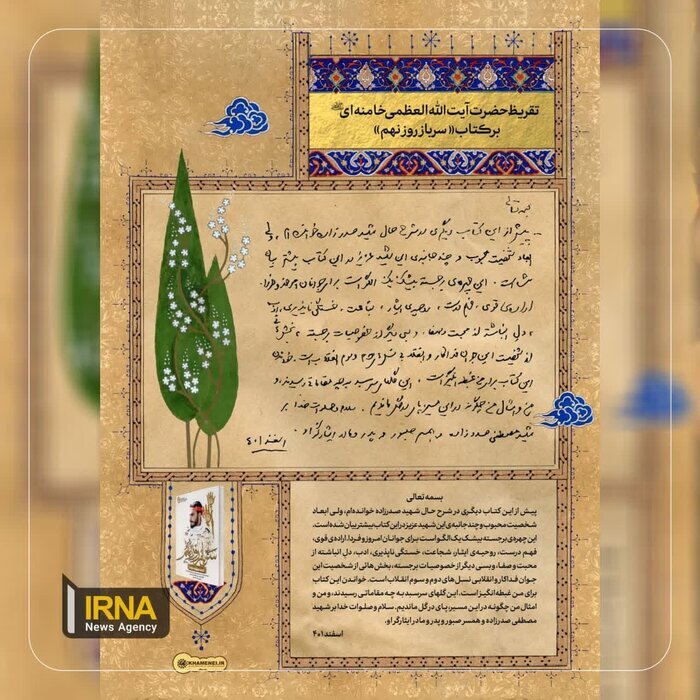 تقریظ حضرت آیت الله العظمی خامنه ای
بر کتاب «سرباز روز نهم»
بسمه تعالی
... پیش از این کتاب دیگری در شرح حال شهید صدرزاده خوانده‌ام، ولی
ابعاد شخصیت محبوب و چند جانبه‌ی این شهید عزیز در این کتاب بیشتر بیان
شده است. این چهره‌ی برجسته بیشک یک الگو است برای جوانان امروز و فردا.
اراده‌ی قوی، فهم درست، روحیه‌ی ایثار، شجاعت، خستگی ناپذیری، ادب،
دلِ انباشته از محبت و صفا، و بسی دیگر از خصوصیات برجسته، بخش هائی
از شخصیت این جوان فداکار و انقلابی نسل های دوم و سوم انقلاب است. خواندن
این کتاب برای من غبطه انگیز است. این گلهای سرسبد به چه مقاماتی رسیدند، و
من و امثال من چگونه در این مسیر، پای در گل ماندیم. سلام و صلوات خدا بر
شهید مصطفی صدرزاده و همسر صبور و پدر و مادر ایثارگر او.
اسفند ۴۰۱
بسمه تعالی
پیش از این کتاب دیگری در شرح حال شهید صدرزاده خوانده‌ام، ولی ابعاد
شخصیت محبوب و چند جانبه‌ی این شهید عزیز در این کتاب بیشتر بیان شده است.
این چهره‌ی برجسته بیشک یک الگو است برای جوانان امروز و فردا. اراده‌ی قوی،
فهم درست، روحیه‌ی ایثار، شجاعت، خستگی ناپذیری، ادب، دلِ انباشته از
محبت و صفا، و بسی دیگر از خصوصیات برجسته، بخش هائی از شخصیت این
جوان فداکار و انقلابی نسل های دوم و سوم انقلاب است. خواندن این کتاب
برای من غبطه انگیز است. این گلهای سرسبد به چه مقاماتی رسیدند، و من و
امثال من چگونه در این مسیر، پای در گل ماندیم. سلام و صلوات خدا بر شهید
مصطفی صدرزاده و همسر صبور و پدر و مادر ایثارگر او.
اسفند ۴۰۱
IRNA
News Agency
KHAMENEI.IR